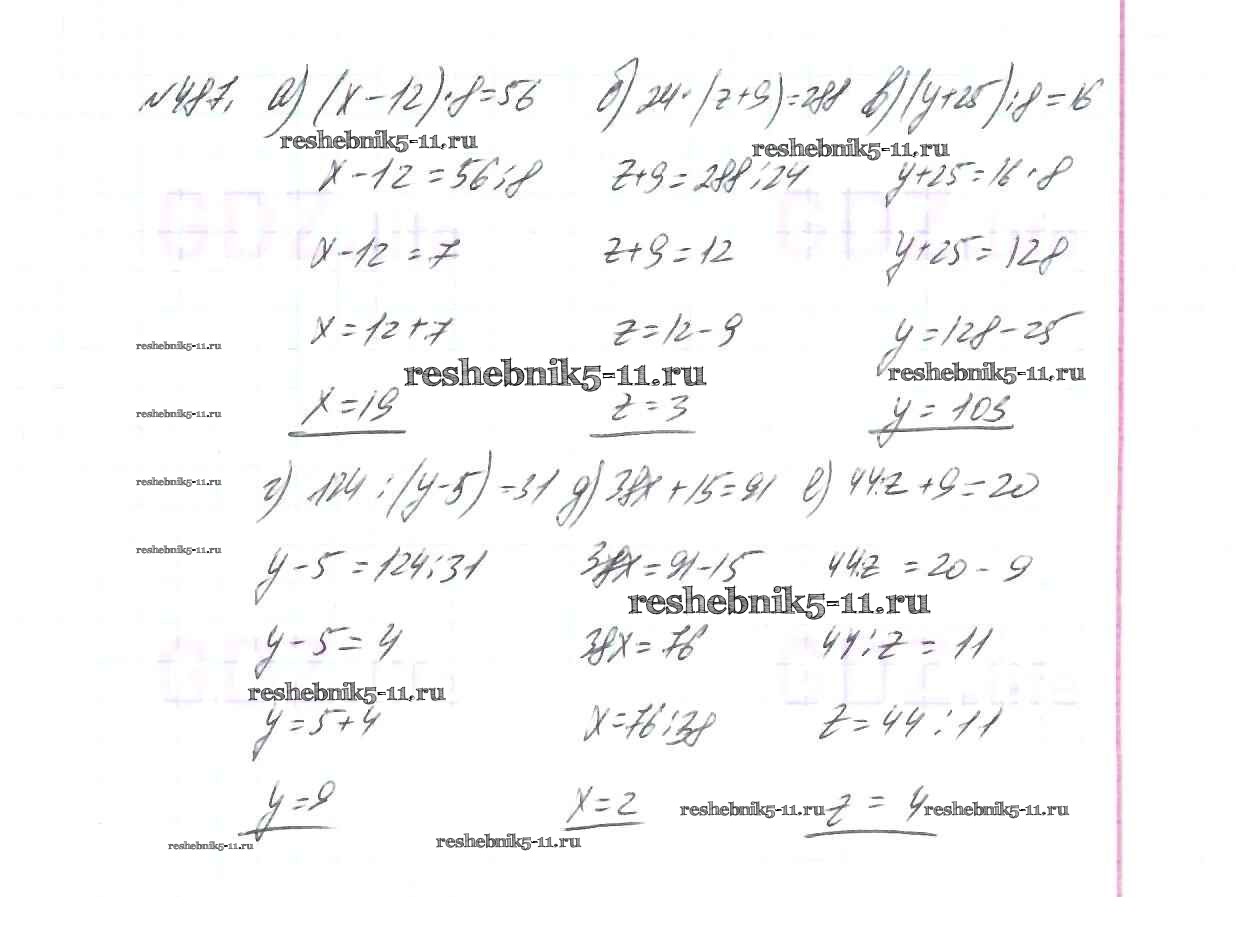 №487. а) (x-12)·8=56 б) 24·(z+9)=288 в) (y+25):8=16
reshebnik5-11.ru reshebnik5-11.ru
x-12=56:8 z+9=288:24 y+25=16·8
x-12=7 z+9=12 y+25=128
x=12+7 z=12-9 y=128-25
reshebnik5-11.ru
reshebnik5-11.ru reshebnik5-11.ru
x=19 z=3 y=103
reshebnik5-11.ru
г) 124:(y-5)=31 д) 38x+15=91 е) 44:z+9=20
reshebnik5-11.ru
y-5=124:31 38x=91-15 44:z=20-9
reshebnik5-11.ru
reshebnik5-11.ru
y-5=4 38x=76 44:z=11
reshebnik5-11.ru
y=5+4 x=76:38 z=44:11
y=9 x=2 z=4
reshebnik5-11.ru reshebnik5-11.ru
reshebnik5-11.ru reshebnik5-11.ru